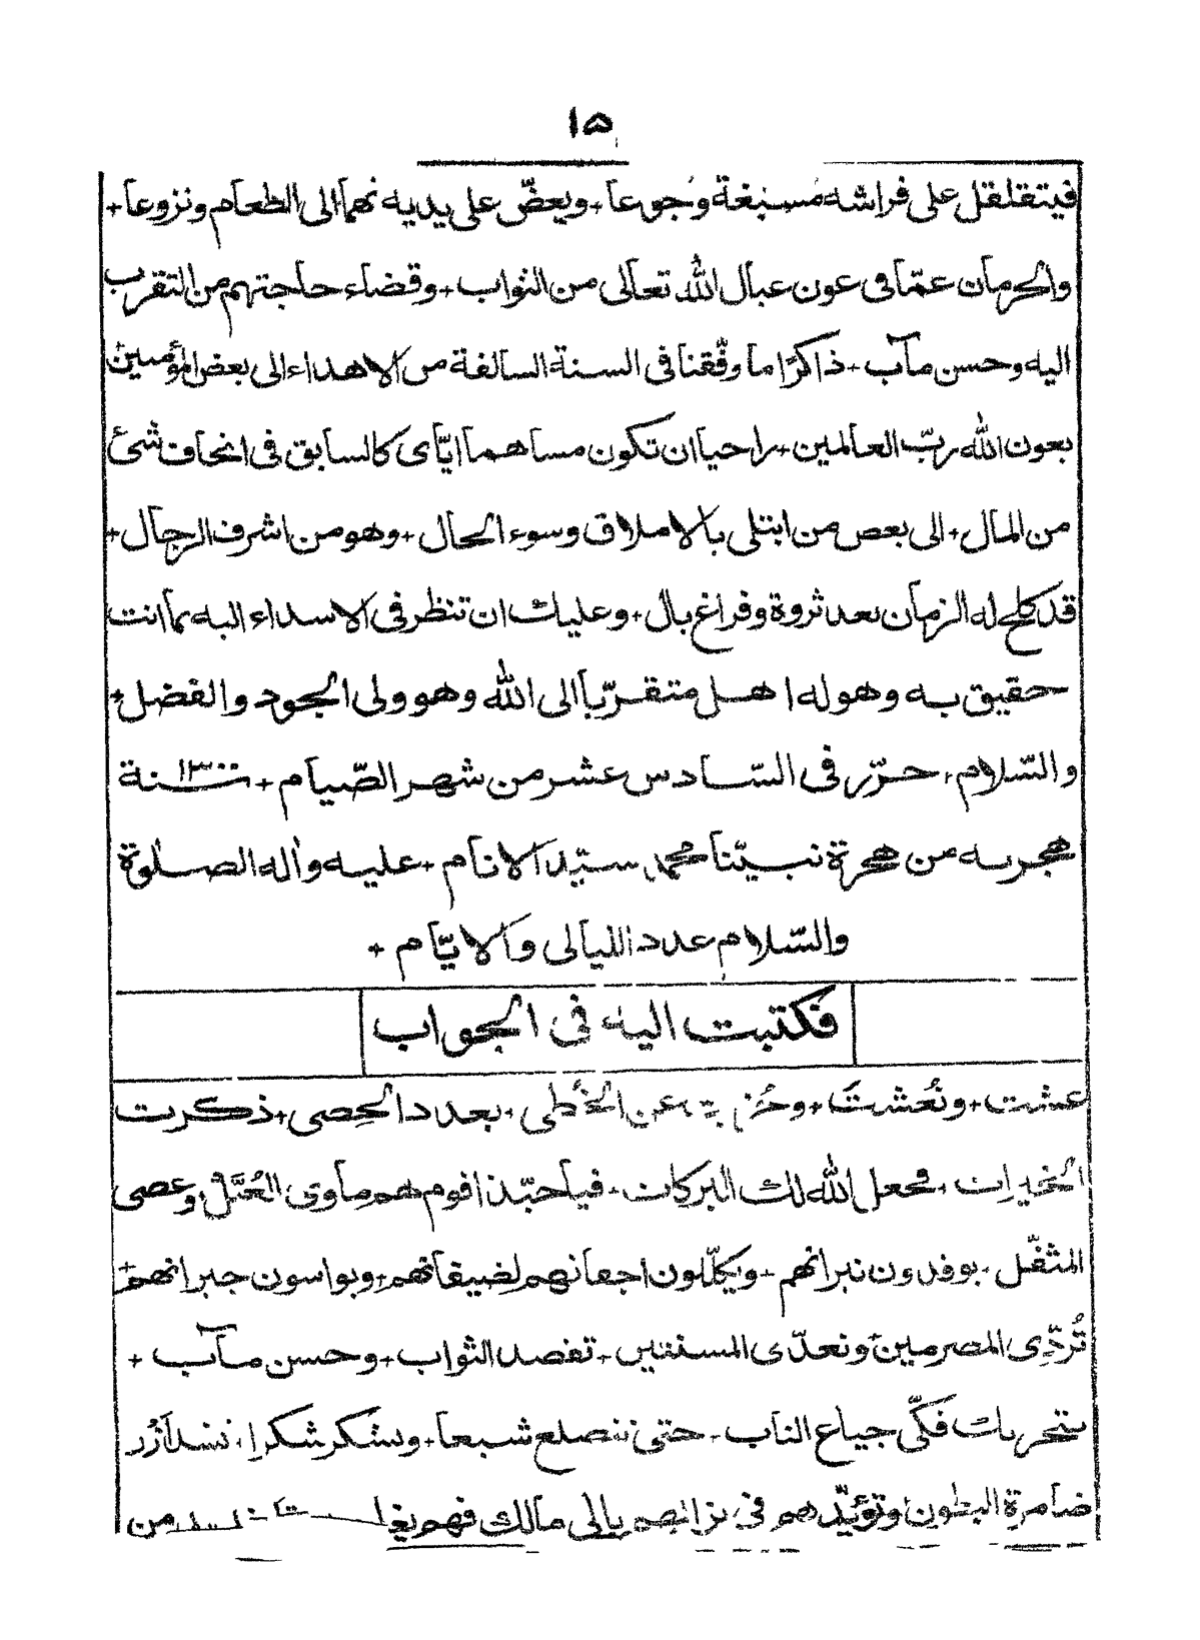 ١٥
فيتقلقل على فراشه مسبغة وجوعا + ويعضّ على يديه نهما الى الطعام ونزوعا +
والحرمان عمّا فى عون عيال الله تعالى من الثواب + وقضاء حاجتهم من التقرب
اليه وحسن مآب + ذاكرًا ما وفّقنا فى السنة السالفة من الاهداء الى بعض المؤمنين
بعون الله ربّ العالمين + راجيا ان تكون مساهما ايّاى كالسابق فى اتحاف شئ
من المال + الى بعض من ابتلى بالاملاق وسوء الحال + وهو من اشرف الرجال +
قد كلح له الزمان بعد ثروة وفراغ بال + وعليك ان تنظر فى الاسداء اليه بما انت
حقيق به وهو له اهل متقرّبا الى الله وهو ولى الجود والفضل +
والسّلام + حرّر فى السّادس عشر من شهر الصّيام + سنة ١٣٠٠
هجريه من هجرة نبيّنا محمد سيّد الانام + عليه واله الصلوة
والسّلام عدد الليالى والايّام +
فكتبت اليه فى الجواب
عشت + ونُعشتَ + وحُزت عن الخُطى + بعدد الحِصى + ذكرت
الخيرات + فجعل الله لك البركات + فياحبّذا قوم هم مأوى العُيَّل وعصى
المثقّل + يوقدون نيرانهم + ويكلّلون اجفانهم لضيفانهم + ويواسون جيرانهم +
المصرمين وتعدّى + تقصد الثواب + وحسن مآب +
فكّى جياع الناب + حتى نتضلع شبعا + ونشكر شكرا +
ضامرة البطون وتؤيّدهم فى يالى مالك فهم من